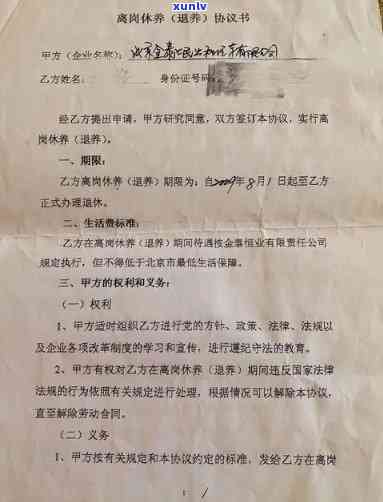 xunlv
离岗休养（退养）协议书
甲方（企业名称）：北京金泰 有限公司
乙方姓名： 身份证号码
经乙方提出申请，甲方研究同意，双方签订本协议，实行离
岗休养（退养）。
一、期限：
乙方离岗休养（退养）期限为：自2009年8月1日起至乙方
正式办理退休。
二、生活费标准：
乙方在离岗休养（退养）期间待遇按金泰恒业有限责任公司
规定执行，但不得低于北京市最低生活保障。
三、甲方的权利和义务：
（一）权利
1、甲方适时组织乙方进行党的方针、政策、法律、法规以
及企业各项改革制度的学习和宣传，进行遵纪守法的教育。
2、甲方有权对乙方在离岗休养（退养）期间违反国家法律
法规的行为依照有关规定进行处理，根据情况可以解除本协议，
直至解除劳动合同。
（二）义务
1、甲方按有关规定和本协议约定的标准，发给乙方在离岗
1